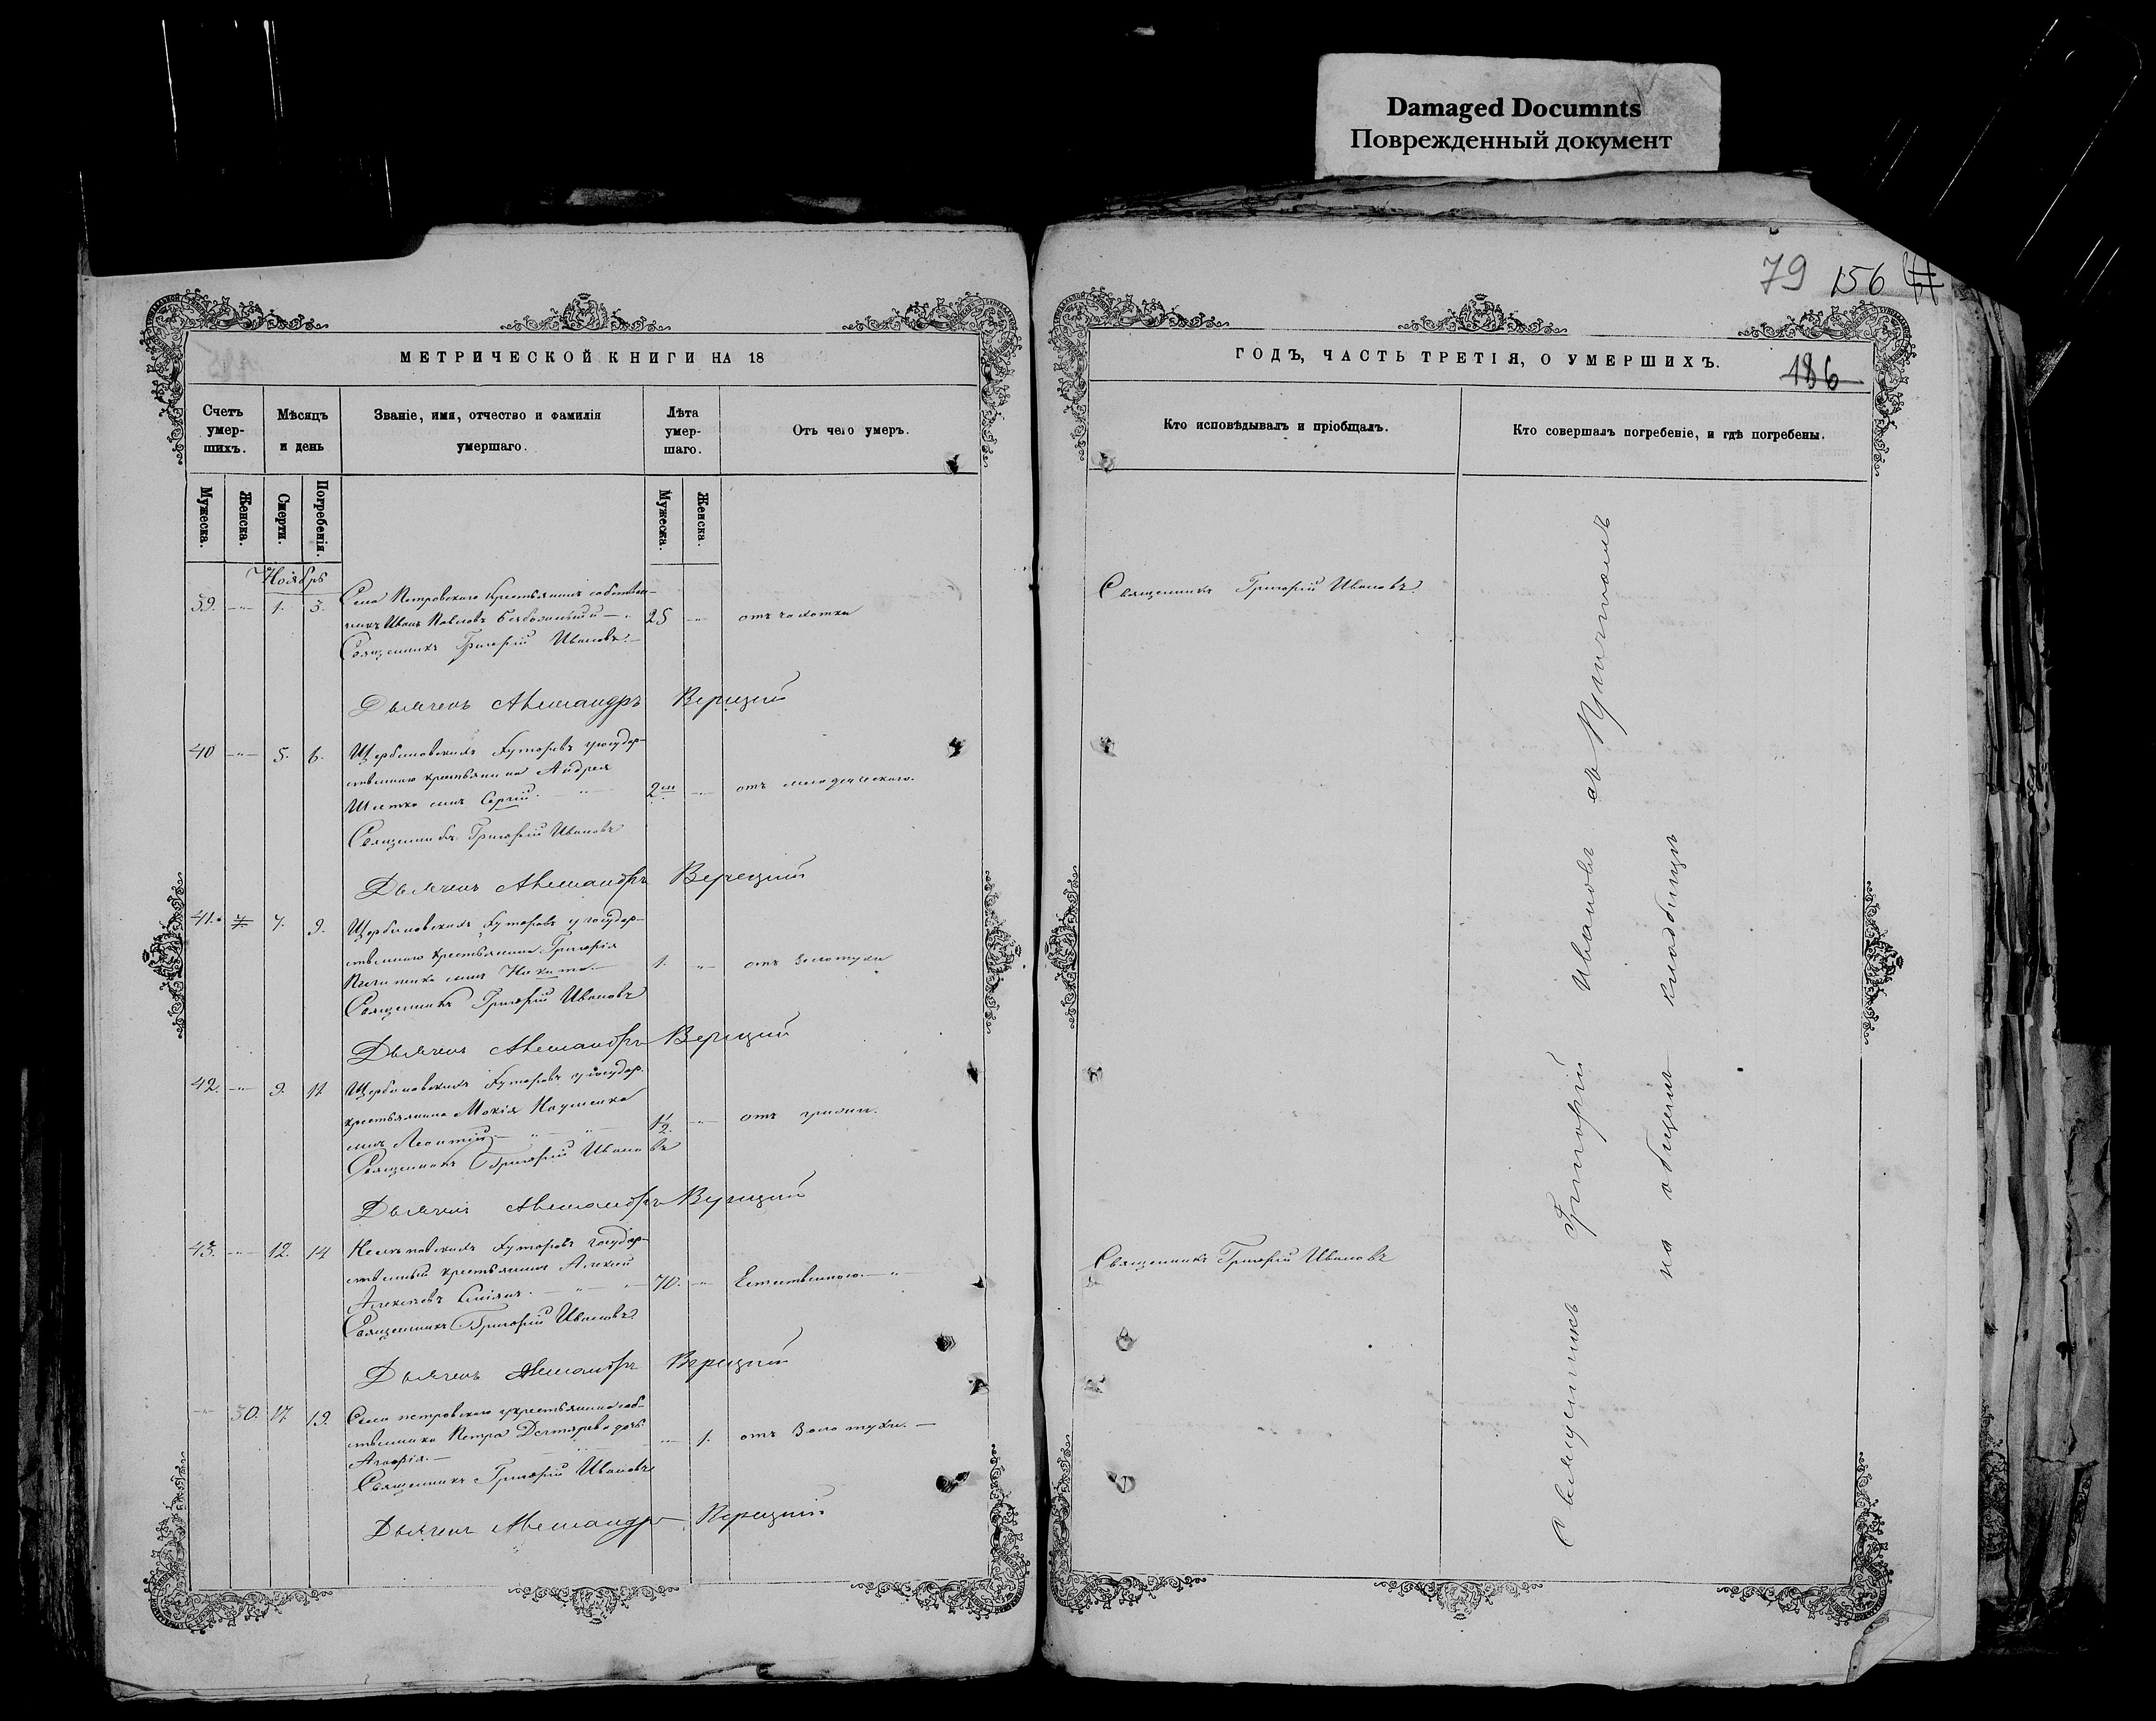 Damaged Documnts
Поврежденный документ
79 156
МЕТРИЧЕСКОЙ КНИГИ НА 18
Счетъ умер-шихъ.
Мѣсяцъ и день
Званіе, имя, отчество и фамилія умершаго.
Лѣта умер-шаго.
Отъ чего умеръ.
Мужеска.
Женска.
Смерти.
Погребенія.
Мужеска.
Женска.
Ноябрь
39. 1. 3. Села Петровскаго крестьянинъ собствен-
никъ Иванъ Павловъ 25 отъ чахотки
Священникъ Григорій Ивановъ.
Дьячекъ Александръ Верецкій
40 5. 6. Щербиновскихъ Хуторовъ у государ-
ственнаго крестьянина Андрея
сынъ Сергій. 2 м отъ младенческаго.
Священникъ Григорій Ивановъ
Дьячекъ Александръ Верецкій
41. 7. 9. Щербиновскихъ Хуторовъ у государ-
ственнаго крестьянина Григорія
сынъ Никита. 1. отъ золотухи
Священникъ Григорій Ивановъ
Дьячекъ Александръ Верецкій
42. 9. 11 Щербиновскихъ Хуторовъ у государ.
крестьянина Мокія Науменка
сынъ Леонтій 1/2. отъ
Священникъ Григорій Ивановъ
Дьячекъ Александръ Верецкій
43. 12. 14 Хуторовъ государ-
ственный крестьянинъ Алексій
Алексѣевъ 70. Естественною.
Священникъ Григорій Ивановъ.
Дьячекъ Александръ Верецкій
30. 17 19. Села петровскаго у крестьянина соб-
ственника Петра Дегтярева дочь
1. отъ Золотухи.
Священникъ Григорій Ивановъ
Дьячекъ Александръ Верецкій
ГОДЪ, ЧАСТЬ ТРЕТІЯ, О УМЕРШИХЪ.
186
Кто исповѣдывалъ и пріобщалъ.
Кто совершалъ погребеніе, и гдѣ погребены.
Священникъ Григорій Ивановъ.
Священникъ Григорій Ивановъ
Священникъ Григорій Ивановъ съ Причтомъ
на общемъ кладбищѣ